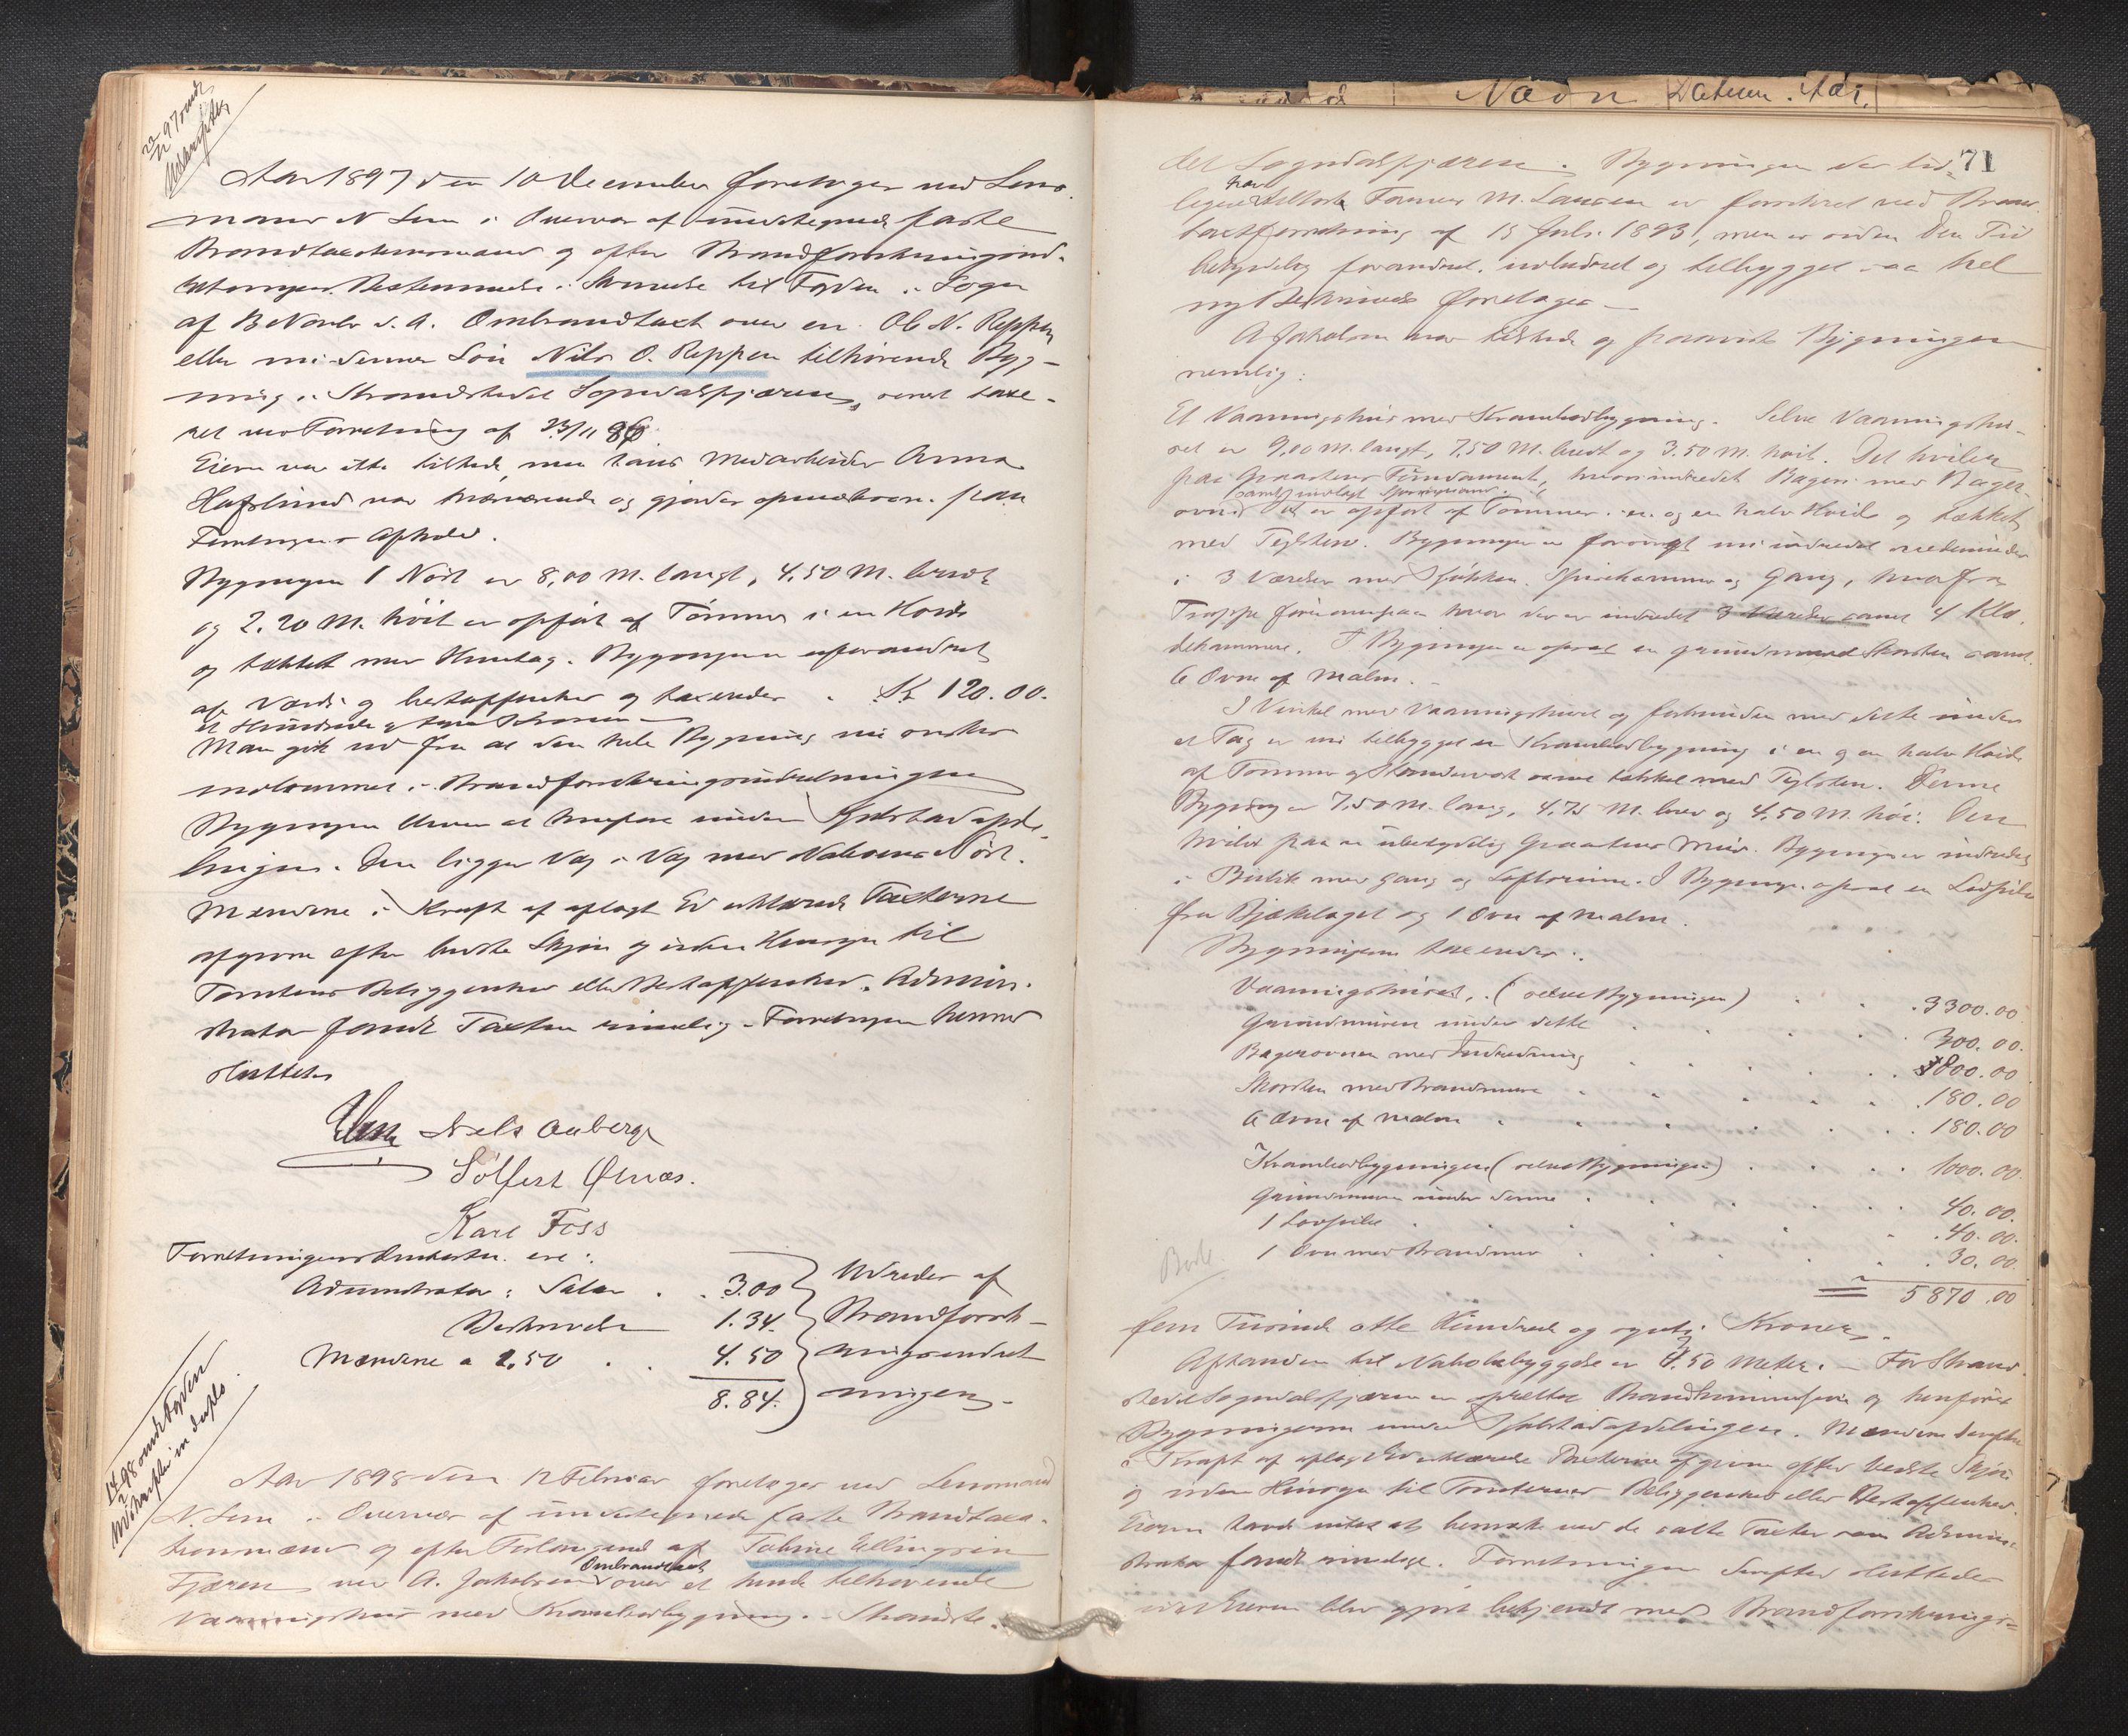 22/12 97 sendt
Udskrifter
Aar 1897 den 10 December foretoges ved Lens-
mann N Lem i Overvær af undertegnede faste
Brandtaxtmænd og efter Brandforsikringsind-
retningens Bestemmelse i Skrivelse til Fogden i Sogn
af 13 Novbr d. A. Ombrandtaxt over en Ole N. Reppen
eller nu denne Søn Nils O. Reppen tilhørende Byg-
ning i Strandstedet Sogndalsfjæren, senest taxe-
ret ved Forretning af 23/11 86.
Eieren var ikke tilstede, men hans Medarbeider Anna
Hafslund var nærværende og gjordes opmærksom paa
Forretningens Afhold.
Bygningen 1 Nøst er 8,00 M. langt, 4,50 M. bredt
og 2.20 M. høit er opført af Tømmer i en Høide
og tækket med Huntag. Bygningen uforandret
af Værdi og beskaffenhed og taxeredes . Kr 120.00.
et Hundrede og tyve Kroner —
Man gik ud fra at den hele Bygning nu ønskes
indlemmet i Brandforsikringsindretningen
Bygningen bliver at henføre under Kjøbstadafde-
lingen. Den ligger Væg i Væg med Naboens Nøst.
Mændene i Kraft af aflagt Ed erklærede Taxterne
afgivne efter bedste Skjøn og uden Hensyn til
Tomtens Beliggenhed eller Beskaffenhed. Admini-
strator fandt Taxten rimelig. Forretningen hermed
sluttet
NLem Nels Aaberge
Sølfest Ølnæs.
Karl Foss
Forretningens Omkostn. ere:
Administrator: Salær . . 3.00
Beskrivelse 1.34
Mændene a 1.50 . . 4.50
8.84.
Udredes af
Brandforsik-
ringsindret
ningen.
14/2 98 sendt Fogden
Udskrifter in duplo.
Aar 1898 den 12 Februar foretoges ved Lensmand
N. Lem i Overvær af undertegnede faste Brandtaxa-
tionsmænd og efter Forlangende af Tobine Ellingsen
Fjæren ved A. Jakobsen Ombrandtaxt over et hende tilhørende
Vaaningshus med Krambodbygning i Strandste-
Navn Datum. Aar.
71
det Sogndalsfjæren. Bygningen der tid-
ligere har tilhørt Farver M. Larsen er forsikret ved Brand-
taxtforretning af 15 Juli 1893, men er siden den Tid
betydelig forandret, udbedret og tilbygget saa hel
ny Beskrivelse foretages —
A Jakobsen var tilstede og paaviste Bygningen
nemlig:
Et Vaaningshus med Krambodbygning. Selve Vaaningshu-
set er 9,00 M. langt, 7,50 M. bredt og 3.50 M. høit. Det hviler
paa Graastens Fundament, hvori indredet Bageri med Bager-
ovn samt indlagt Det er opført af Tømmer i en og en halv Høide og tækket
med Teglsten. Bygningen er forøvrigt nu indredet nedenunder
i 3 Værelser med Kjøkken, Spisekammer og Gang, hvorfra
Trappe fører ovenpaa hvor der er indredet 3 Værelser samt 4 Klæ-
dekammere. I Bygningen er opsat en grundmuret Skorsten samt
6 Ovne af Malm. —
I Vinkel med Vaaningshuset og forbunden med dette under
et Tag er nu tilbygget en Krambodbygning i en og en halv Høide
af Tømmer og Standerværk samt tækket med Teglsten. Denne
Bygning er 7,50 M. lang, 4,75 M. bred og 4,50 M. høi. Den
hviler paa en ubetydelig Graastens Mur. Bygningen er indredet
i Butik med Gang og Loftsrum. I Bygningen opsat en Ladpibe
fra Bjælkelaget og 1 Ovn af Malm.
Bygningerne taxeredes:
Vaaningshuset, (selve Bygningen) . . . 3300.00
Grundmuren under dette . . . 300.00.
Bagerovnen med Indredning . . . 800.00
Skorsten med Brandmure . . . 180.00
6 Ovne af Malm . . . 180.00
Krambodbygningen (selve Bygningen) . . . 1000.00.
Grundmuren under denne . . . 40.00.
1 Ladpibe . . . 40.00.
1 Ovn med Brandmur . . . 30.00.
5870.00
fem Tusinde otte Hundrede og sytti Kroner.
Afstanden til Nabobebyggelse er 4.50 Meter. — For Strand-
stedet Sogndalsfjæren er oprettet Brandkommission og henføres
Bygningerne under Kjøbstadafdelingen. Mændene derefter
i Kraft af aflagt Ed erklærede Taxterne afgivne efter bedste Skjøn
og uden Hensyn til Tomternes Beliggenhed eller Beskaffenhed.
Eieren havde intet at bemærke ved de satte Taxter som Admini-
strator fandt rimelige. Forretningen derefter sluttede
idet Eieren blev gjort bekjendt med Brandforsikrings-